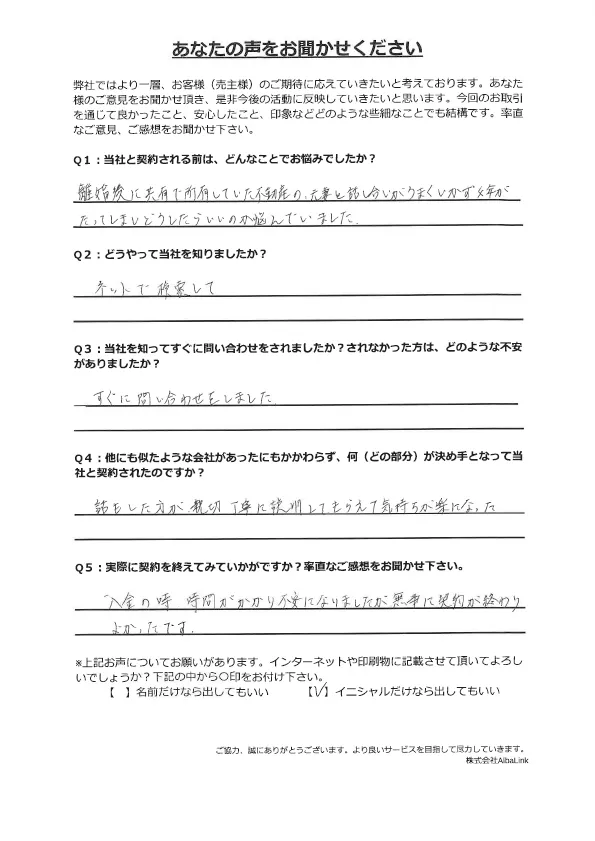 あなたの声をお聞かせください
弊社ではより一層、お客様（売主様）のご期待に応えていきたいと考えております。あなた
様のご意見をお聞かせ頂き、是非今後の活動に反映していきたいと思います。今回のお取引
を通じて良かったこと、安心したこと、印象などどのような些細なことでも結構です。率直
なご意見、ご感想をお聞かせ下さい。
Q１：当社と契約される前は、どんなことでお悩みでしたか？
離婚後に共有で所有していた不動産の、元妻と話し合いがうまくいかず年が
たってしまいどうしたらいいのか悩んでいました.
Q２：どうやって当社を知りましたか？
ネットで検索して
Q３：当社を知ってすぐに問い合わせをされましたか？されなかった方は、どのような不安
がありましたか？
すぐに問い合わせをしました.
Q４：他にも似たような会社があったにもかかわらず、何（どの部分）が決め手となって当
社と契約されたのですか？
話をした方が、親切 丁寧に説明してもらえて気持ちが楽になった
Q５：実際に契約を終えてみていかがですか？率直なご感想をお聞かせ下さい。
入金の時 時間がかかり不安になりましたが無事に契約が終わり
よかったです.
※上記お声についてお願いがあります。インターネットや印刷物に記載させて頂いてよろし
いでしょうか？下記の中から〇印をお付け下さい。
【 】名前だけなら出してもいい 【✓】イニシャルだけなら出してもいい
ご協力、誠にありがとうございます。より良いサービスを目指して尽力していきます。
株式会社AlbaLink